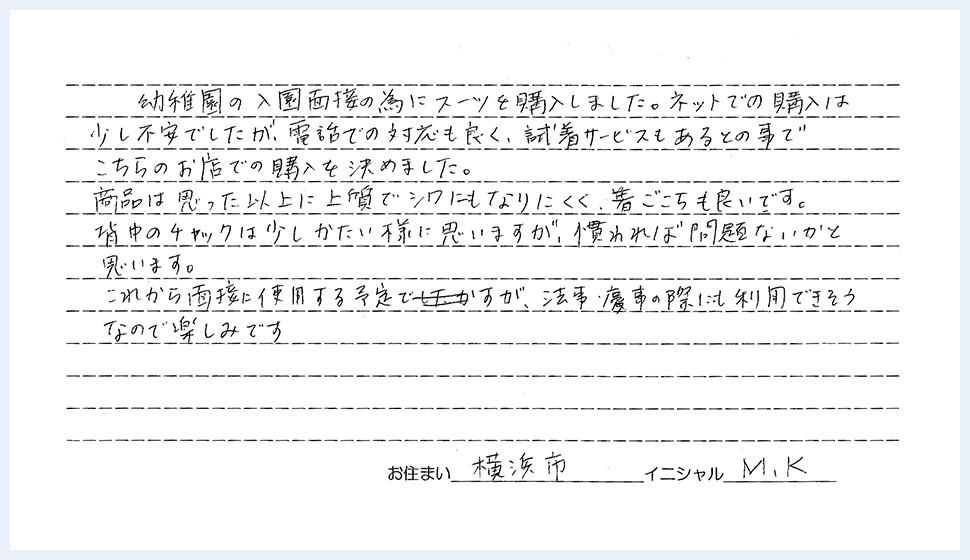 幼稚園の入園面接の為にスーツを購入しました。ネットでの購入は
少し不安でしたが、電話での対応も良く、試着サービスもあるとの事で
こちらのお店での購入を決めました。
商品は思った以上に上質でシワにもなりにくく、着ごこちも良いです。
背中のチャックは少しかたい様に思いますが、慣れれば問題ないかと
思います。
これから面接に使用する予定ですが、法事・慶事の際にも利用できそう
なので楽しみです
お住まい 横浜市 イニシャル M.K